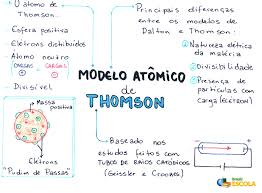 O átomo de
Thomson:
Esfera positiva
Elétrons distribuídos
Átomo neutro
CARGAS
CARGAS
Divisível
Massa
positiva
Elétrons
"Pudim de Passas"
MODELO ATÔMICO
de
THOMSON
Principais diferenças
entre os modelos de
Dalton e Thomson:
① Natureza elétrica
da matéria
② Divisibilidade
③ Presença de
partículas com
carga (elétron)
Baseado nos
estudos feitos com
TUBOS DE RAIOS CATÓDICOS
(Geissler e Crookes)
Brasil
ESCOLA